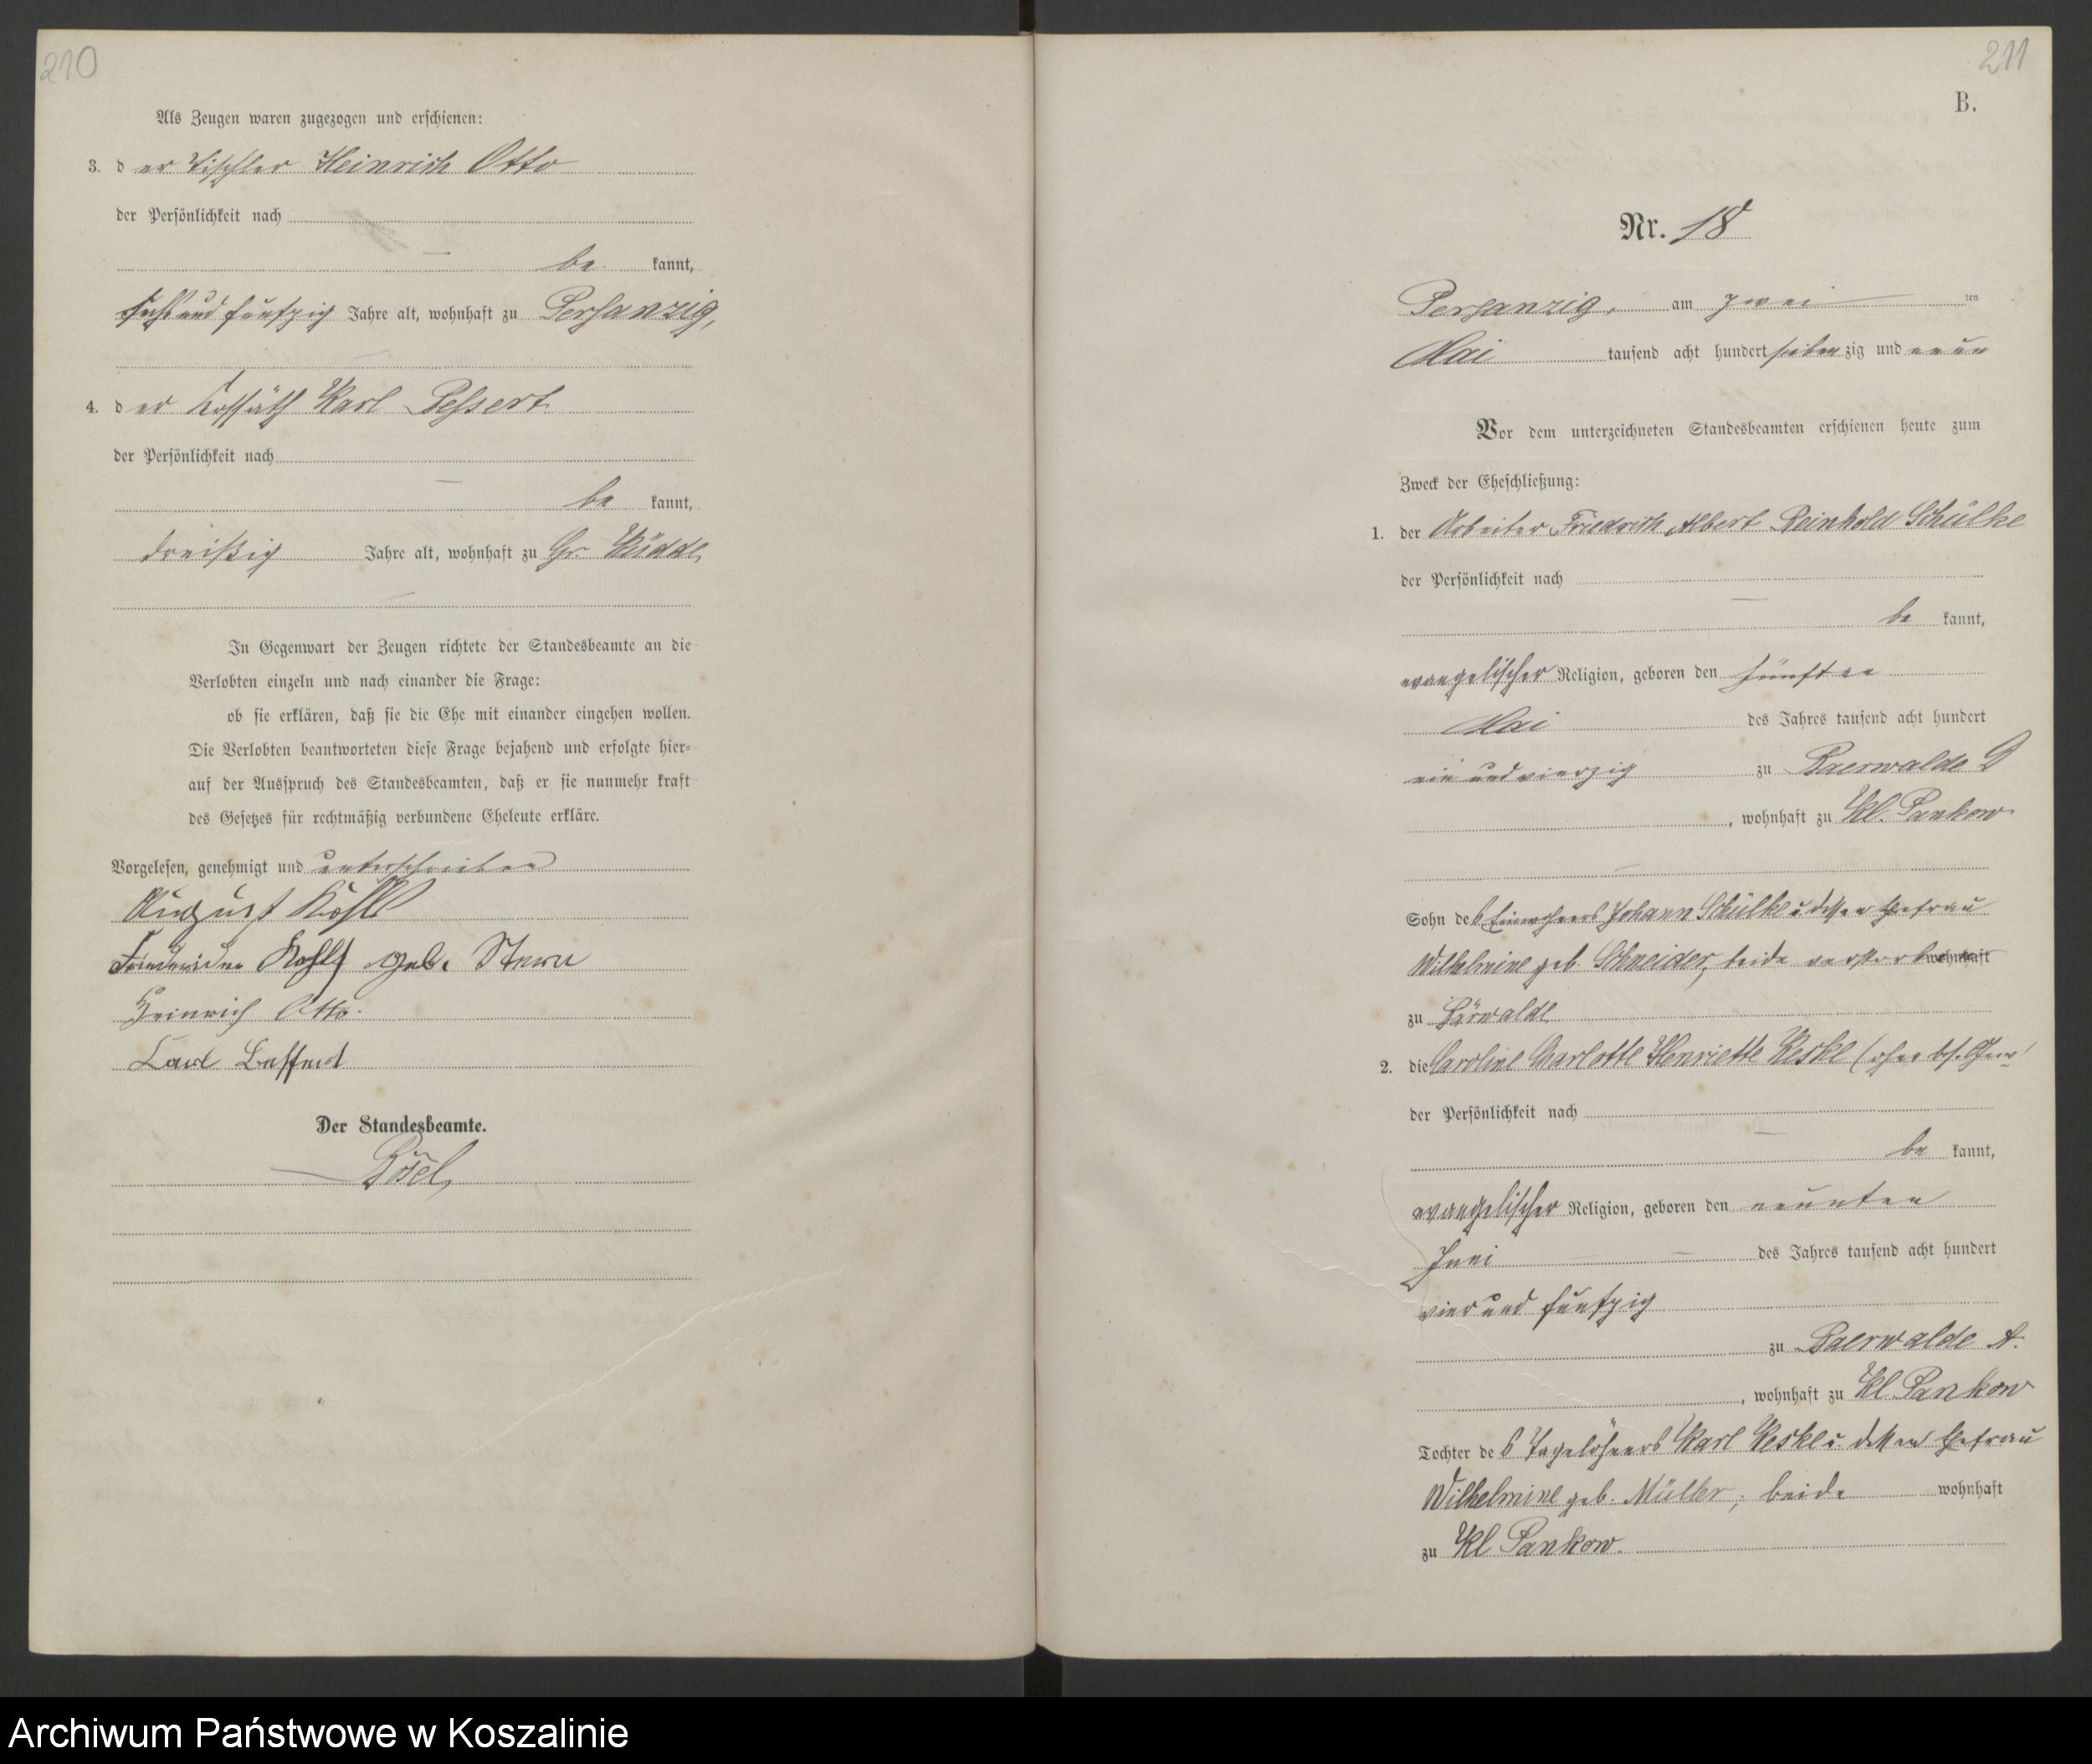 210
Als Zeugen waren zugezogen und erschienen:
3. der Tischler Heinrich Otto
der Persönlichkeit nach
— bekannt,
sechs und funfzig Jahre alt, wohnhaft zu Persanzig,
—
4. der Kossäth Karl Bessert
der Persönlichkeit nach
— bekannt,
dreißig Jahre alt, wohnhaft zu Gr Küdde,
—
In Gegenwart der Zeugen richtete der Standesbeamte an die
Verlobten einzeln und nach einander die Frage:
ob sie erklären, daß sie die Ehe mit einander eingehen wollen.
Die Verlobten beantworteten diese Frage bejahend und erfolgte hier-
auf der Ausspruch des Standesbeamten, daß er sie nunmehr kraft
des Gesetzes für rechtmäßig verbundene Eheleute erkläre.
Vorgelesen, genehmigt und unterschrieben
August
geb.
Heinrich Otto.
Carl Bessert
Der Standesbeamte.
211
B.
Nr. 18
Persanzig, am zwei ten
Mai tausend acht hundert siebenzig und neun
Vor dem unterzeichneten Standesbeamten erschienen heute zum
Zweck der Eheschließung:
1. der Arbeiter Friedrich Albert Reinhold Schülke
der Persönlichkeit nach
— bekannt,
evangelischer Religion, geboren den fünften
Mai des Jahres tausend acht hundert
ein und vierzig zu Baerwalde
, wohnhaft zu Kl. Pankow
—
Sohn des Einwohners Johann Schülke u dessen Ehefrau
Wilhelmine geb. Schneider, beide verstorben wohnhaft
zu Bärwalde
2. die Caroline Charlotte Henriette Keske (ohne bs. Gew)
der Persönlichkeit nach
— bekannt,
evangelischer Religion, geboren den neunten
Juni — — des Jahres tausend acht hundert
vier und funfzig
zu Baerwalde A.
, wohnhaft zu Kl. Pankow
Tochter des Tagelöhners Karl Keske u. dessen Ehefrau
Wilhelmine geb. Müller, beide wohnhaft
zu Kl Pankow.
Archiwum Państwowe w Koszalinie